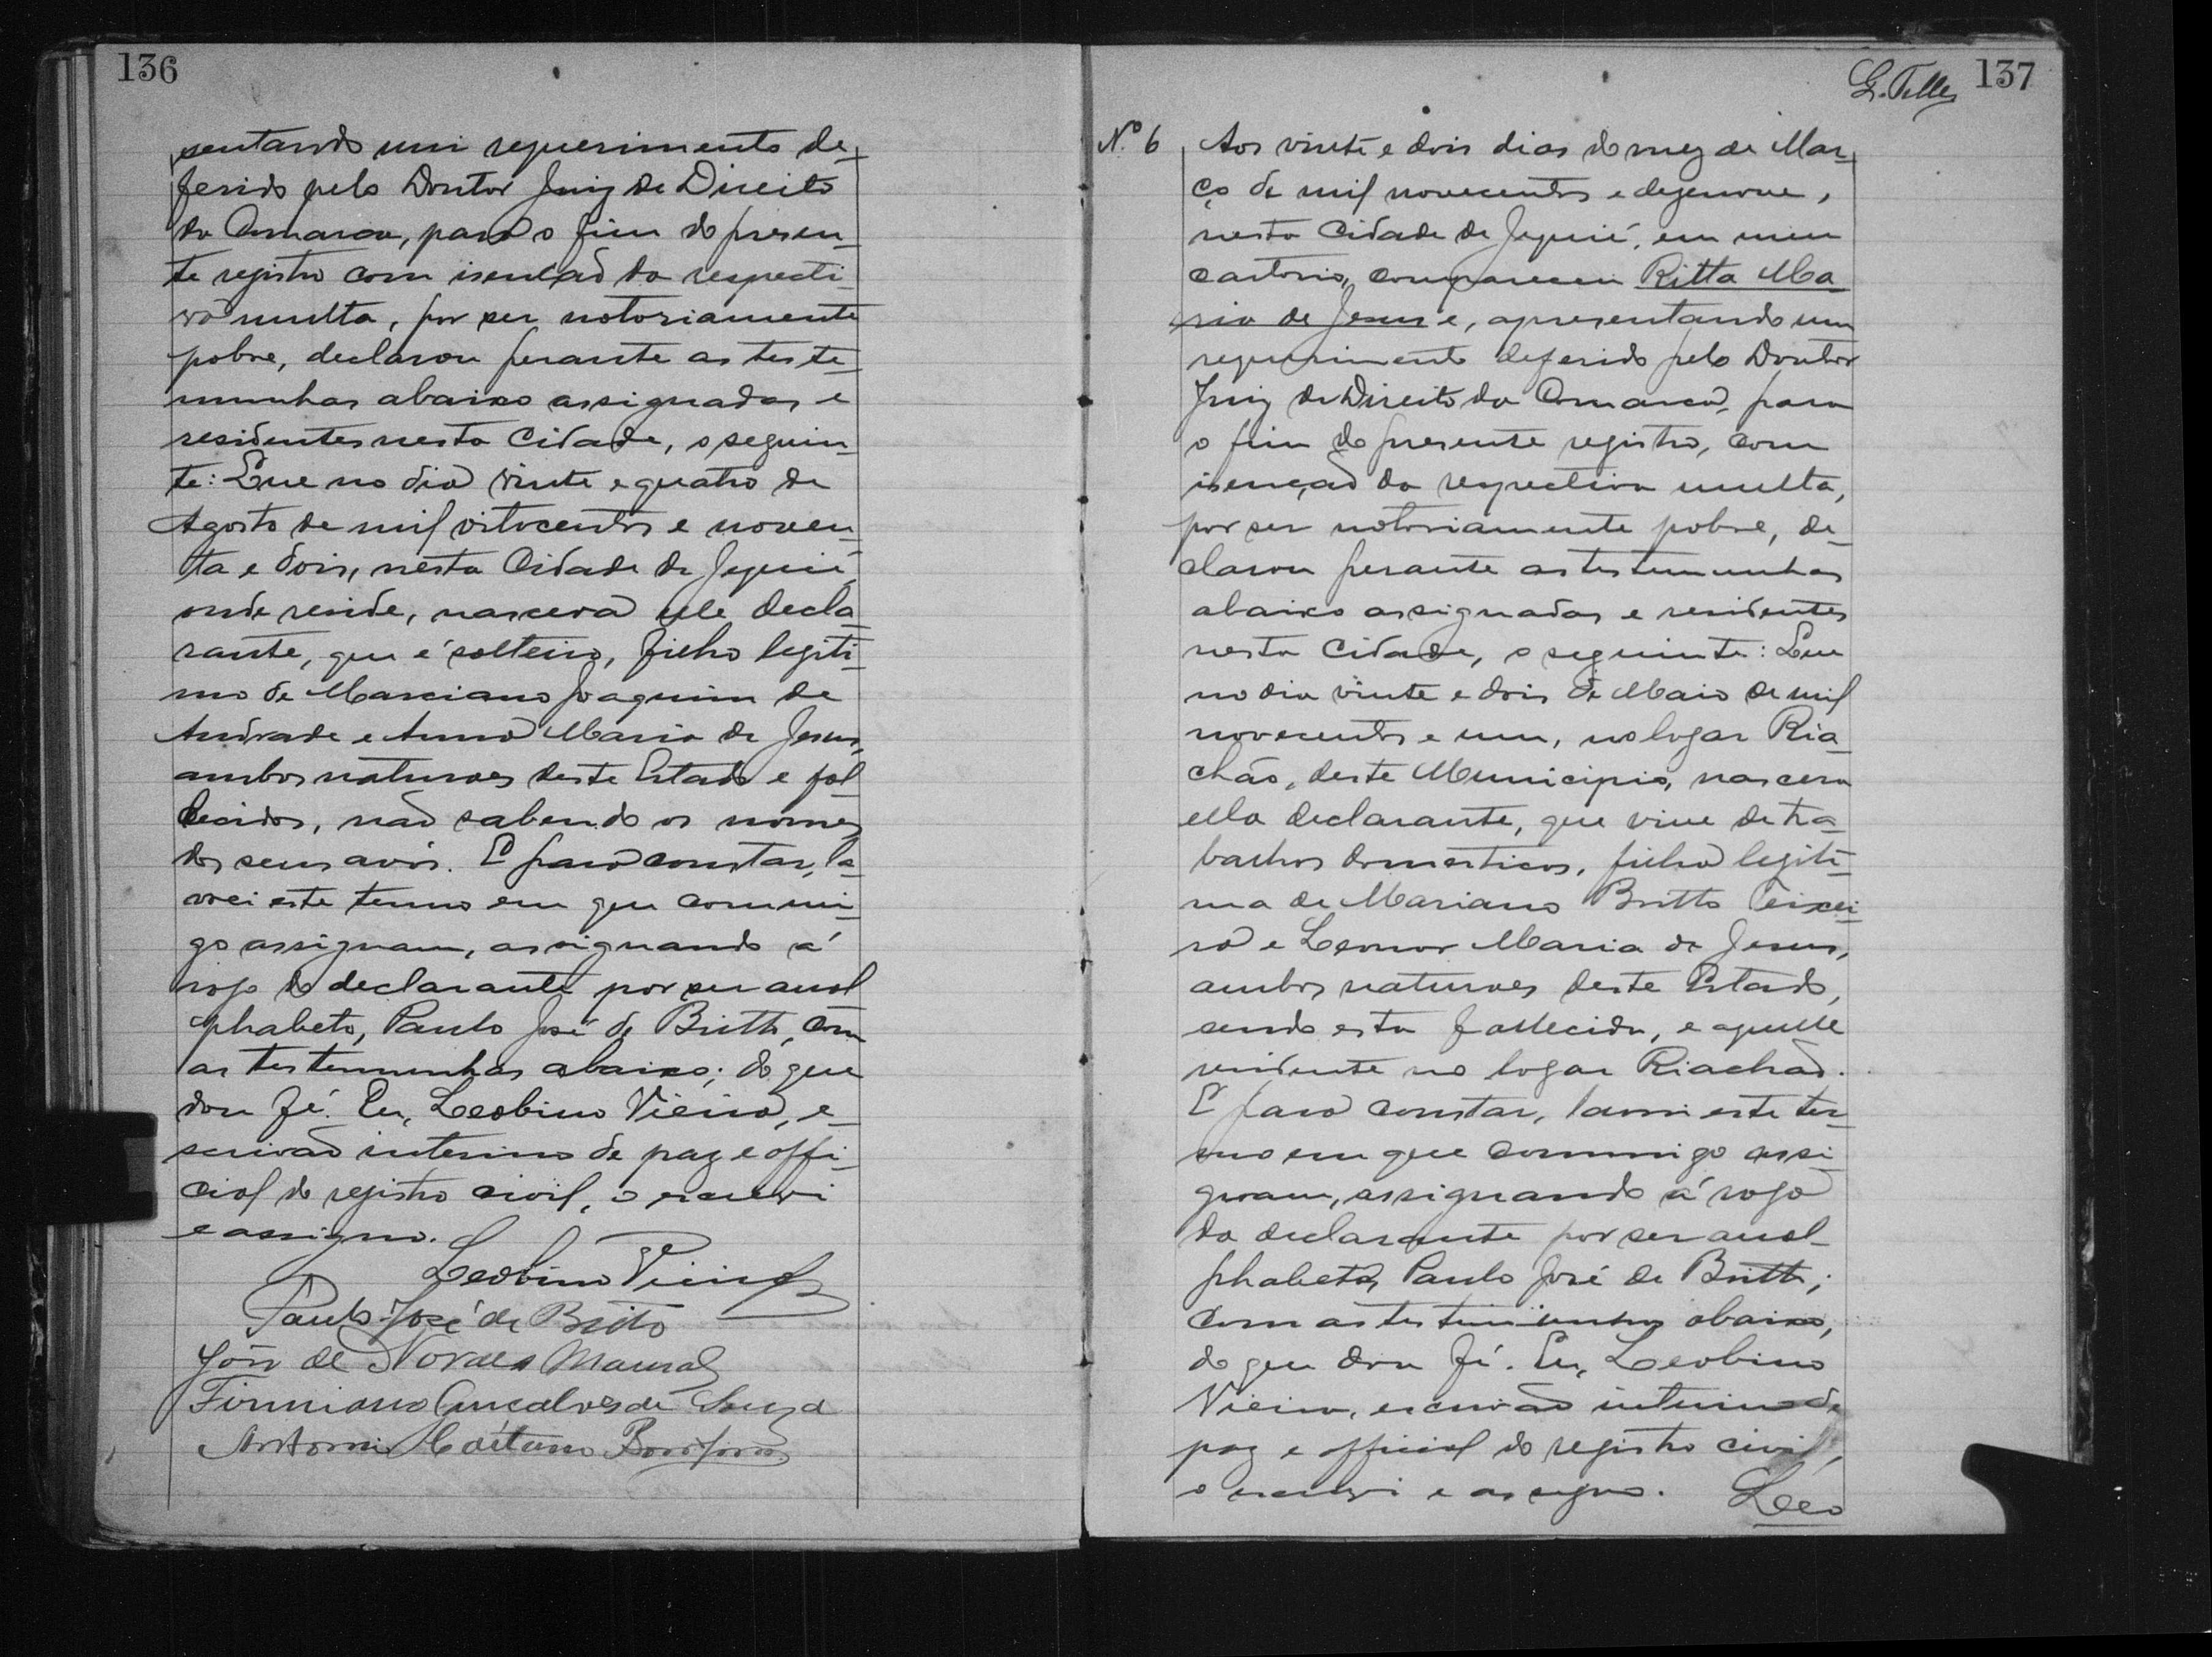 136
sentando um requerimento de-
ferido pelo Doutor Juiz de Direito
da Comarca, para o fim do presen-
te registro com isenção da respecti-
va multa, por ser notoriamente
pobre, declarou perante as teste-
munhas abaixo assignadas e
residentes nesta Cidade, o seguin-
te: Que no dia vinte e quatro de
Agosto de mil oitocentos e noven-
ta e dois, nesta Cidade de Jequié,
onde reside, nascera elle decla-
rante, que é solteiro, filho legiti-
mo de Marciano Joaquim de
Andrade e Anna Maria de Jesus,
ambos naturaes deste Estado e fal-
lecidos, não sabendo os nomes
dos seus avós. E para constar, la-
vrei este termo em que commi-
go assignam, assignando á
rogo do declarante por ser anal-
phabeto, Paulo José de Britto, com
as testemunhas abaixo; do que
dou fé. Eu, Leobino Vieira, e-
scrivão interino de paz e offi-
cial do registro civil, o escrevi
e assigno.
Leobino Vieira
Paulo José de Brito
João de Novaes
Firmiano Gonçalves de Souza
Antonio Caetano Bomfim
G. Telles 137
Nº 6 Aos vinte e dois dias do mez de Mar-
ço de mil novecentos e dezenove,
nesta Cidade de Jequié, em meu
cartorio, compareceu Ritta Ma-
ria de Jesus e, apresentando um
requerimento deferido pelo Doutor
Juiz de Direito da Comarca, para
o fim do presente registro, com
isenção da respectiva multa,
por ser notoriamente pobre, de-
clarou perante as testemunhas
abaixo assignadas e residentes
nesta Cidade, o seguinte: Que
no dia vinte e dois de Maio de mil
novecentos e um, no logar Ria-
chão, deste Municipio, nascera
ella declarante, que vive de tra-
balhos domesticos, filha legiti-
ma de Mariano Britto Teixei-
ra e Leonor Maria de Jesus,
ambos naturaes deste Estado,
sendo esta fallecida, e aquelle
residente no logar Riachão.
E para constar, lavrei este ter-
mo em que commigo assi-
gnam, assignando á rogo
da declarante por ser anal-
phabeta, Paulo José de Britto;
com as testemunhas abaixo,
do que dou fé. Eu, Leobino
Vieira, escrivão interino de
paz e official do registro civil,
o escrevi e assigno. Leo